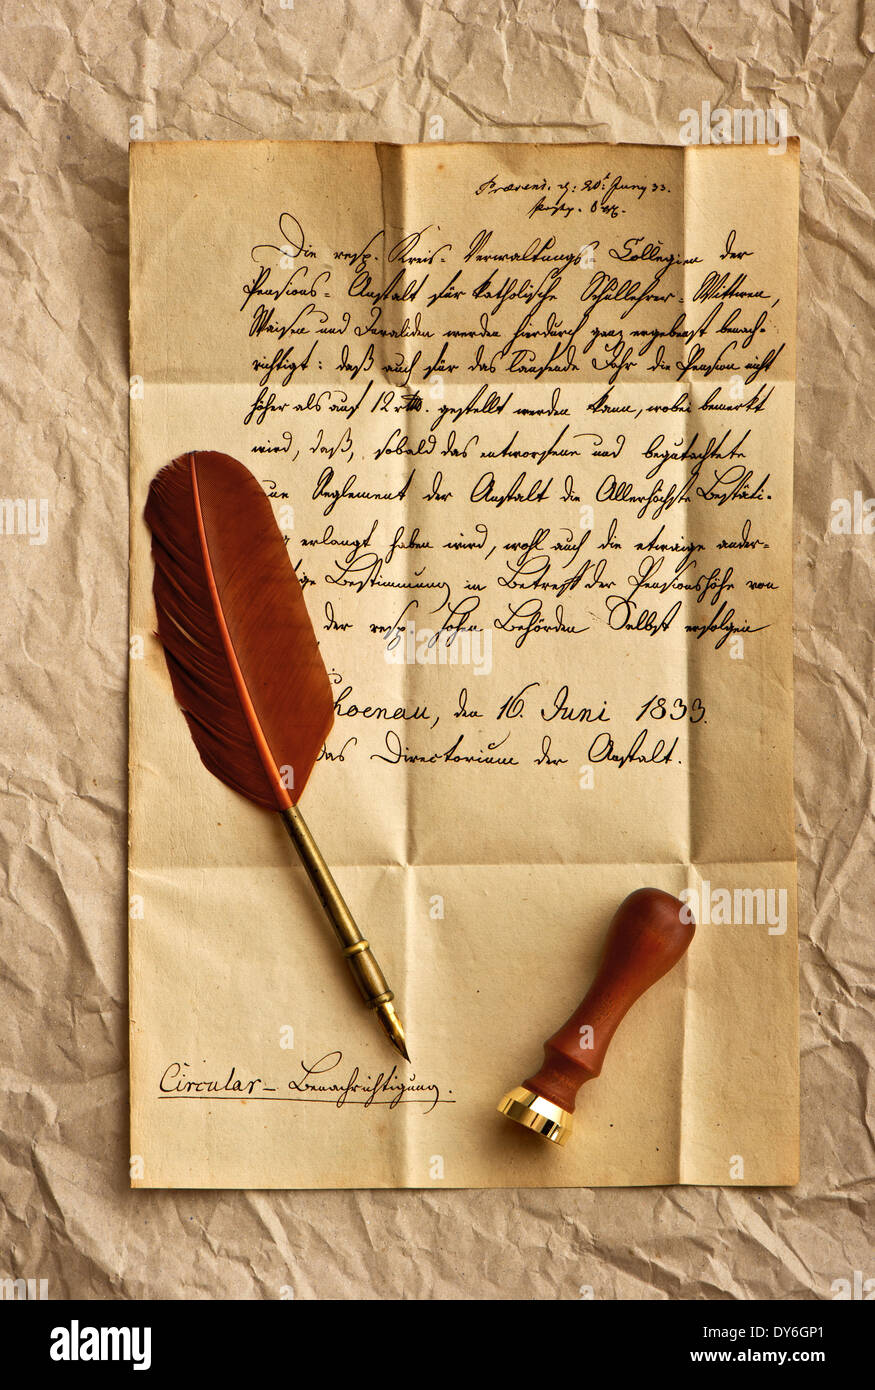 Praesent. d. 20t Juny 33.
Die resp. Kreis-Verwaltungs-Collegien der
Pensions-Anstalt für katholische Schullehrer-Wittwen,
Waisen und Invaliden werden hierdurch ganz ergebenst benach-
richtigt: daß auch für das laufende Jahr die Pension nicht
höher als auf 12 rthl. gestellt werden kann, wobei bemerkt
wird, daß, sobald das entworfene und begutachtete
neue Reglement der Anstalt die Allerhöchste Bestäti-
erlangt haben wird, wohl auch die etwaige ander-
Bestimmung in Betreff der Pensionshöhe von
der resp. hohen Behörden Selbst erfolgen
hoenau, den 16. Juni 1833.
Das Directorium der Anstalt.
Circular-Benachrichtigung.
a alamy stock photo
DY6GP1
www.alamy.com